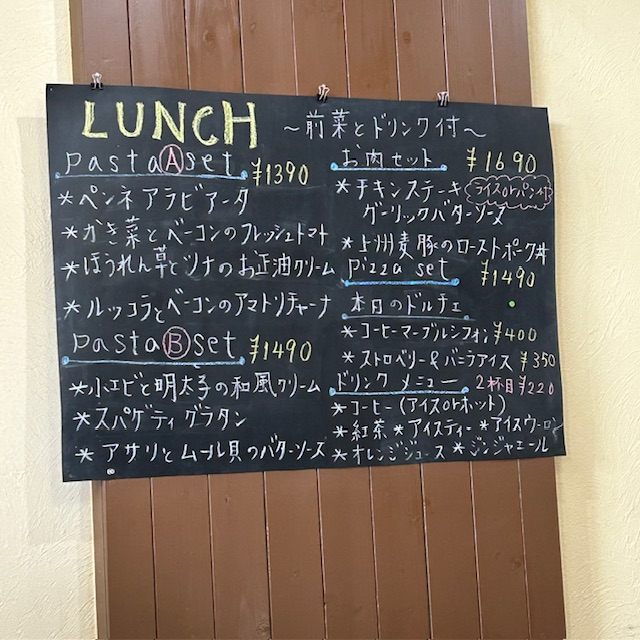 LUNCH
~前菜とドリンク付~
Pasta Ⓐ set ¥1390
*ペンネアラビアータ
*かき菜とベーコンのフレッシュトマト
*ほうれん草とツナのお正油クリーム
*ルッコラとベーコンのアマトリチャーナ
Pasta Ⓑ set ¥1490
*小エビと明太子の和風クリーム
*スパゲティグラタン
*アサリとムール貝のバターソース
お肉セット ¥1690
*チキンステーキ ライスorパン付
ガーリックバターソース
*上州麦豚のローストポーク丼
Pizza set ¥1490
本日のドルチェ
*コーヒーマーブルシフォン ¥400
*ストロベリー&バニラアイス ¥350
ドリンクメニュー 2杯目¥220
*コーヒー(アイスorホット)
*紅茶 *アイスティー *アイスウーロン
*オレンジジュース *ジンジャエール